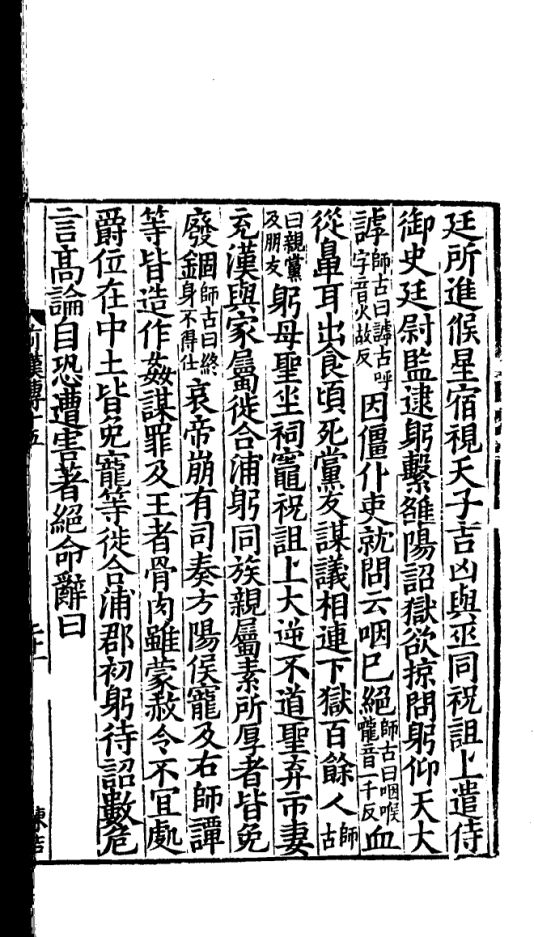 廷所進候星宿視天子吉凶與巫同祝詛上遣侍
御史廷尉監逮躬繫雒陽詔獄欲掠問躬仰天大
謼師古曰謼古呼字音火故反因僵仆吏就問云咽已絕師古曰咽喉嚨音一千反血
從鼻耳出食頃死黨友謀議相連下獄百餘人師古
曰親黨及朋友躬母聖坐祠竈祝詛上大逆不道聖弃市妻
充漢與家屬徙合浦躬同族親屬素所厚者皆免
廢錮師古曰終身不得仕哀帝崩有司奏方陽侯寵及右師譚
等皆造作姦謀罪及王者骨肉雖蒙赦令不宜處
爵位在中土皆免寵等徙合浦郡初躬待詔數危
言高論自恐遭害著絕命辭曰
前漢傳十五